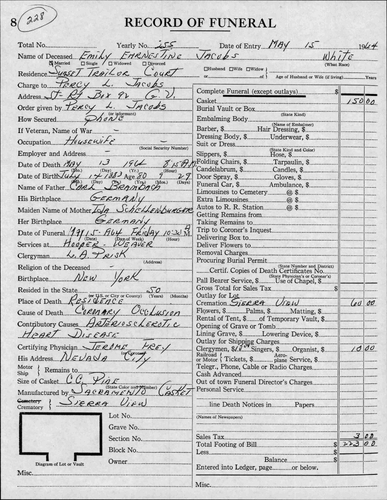 8 228 RECORD OF FUNERAL
Total No. Yearly No. 255 Date of Entry MAY 15 1964
Name of Deceased Emily Earnestine Jacobs White
(What Race)
Married Single Widowed Divorced Husband Wife Widow of
Residence Sunset Trailer Court Age of Husband or Wife (if living) Years
Charge to Percy L. Jacobs
Address Rt Box G.V.
Order given by Percy L. Jacobs
How Secured Phone
If Veteran, Name of War
Occupation Housewife
(Social Security Number)
Employer and Address
Date of Death MAY 13 1964 8:15 A.M.
Date of Birth July 14 1883 Age 80 9 29
Name of Father Carl
His Birthplace Germany
Maiden Name of Mother Ida
Her Birthplace Germany
Date of Funeral MAY 15 Friday 10:30
Services at Hooper-Weaver
Clergyman L.A. Trisk
Religion of the Deceased
Birthplace New York
Resided in the State 50
Place of Death Residence
Cause of Death Coronary Occlusion
Contributory Causes Arteriosclerotic
Heart Disease
Certifying Physician Jerome Frey
His Address Nevada City
Motor Remains to
Ship
Size of Casket CC Pine
(State Color and Number)
Manufactured by Sacramento Casket
Cemetery Sierra View
Crematory
Lot No.
Grave No.
Section No.
Block No.
Owner
Diagram of Lot or Vault
Misc.
Complete Funeral (except outlays) $
Casket 150 00
Burial Vault or Box
(State Kind)
Embalming Body
(Name of Embalmer)
Barber, $ Hair Dressing, $
Dressing Body, $ Underwear, $
Suit or Dress
(State Kind and Color)
Slippers, $ Hose, $
Folding Chairs, $ Tarpaulin, $
Candelabrum, $ Candles, $
Door Spray, $ Gloves, $
Funeral Car, $ Ambulance, $
Limousines to Cemetery @ $
Extra Limousines @ $
Autos to R. R. Station @ $
Getting Remains from
Taking Remains to
Trip to Coroner's Inquest
Delivering Box to
Deliver Flowers to
Removal Charges
Procuring Burial Permit
Certif. Copies of Death Certificates No.
Pall Bearer Service, $ Use of Chapel, $
Gross Total for Sales Tax $
Outlay for Lot
Cremation Sierra View 60 00
Flowers, $ Palms, $ Matting, $
Rental of Tent, $ of Temporary Vault, $
Opening of Grave or Tomb
Lining Grave, $ Lowering Device, $
Outlay for Shipping Charges
Clergymen, $ Singers, $ Organist, $ 10 00
Railroad or Motor Tickets, $ Aeroplane Service, $
Telegr., Phone, Cable or Radio Charges
Cash Advanced
Out of town Funeral Director's Charges
Personal Service
line Death Notices in Papers
(Names of Newspapers)
Sales Tax 3 00
Total Footing of Bill $ 223 00
Less
Balance $
Entered into Ledger, page or below.
Misc.